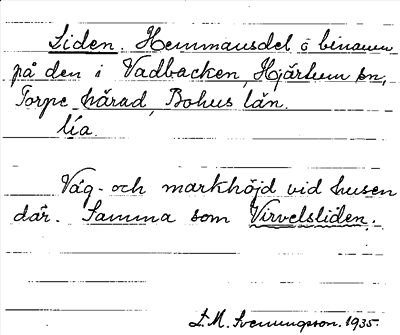 Liden. Hemmansdel o binamn
på den i Vadbacken, Hjärtum sn,
Torpe härad, Bohus län.
lía.
Väg- och markhöjd vid husen
där. Samma som Virvelsliden.
L.M. Svenungsson. 1935.